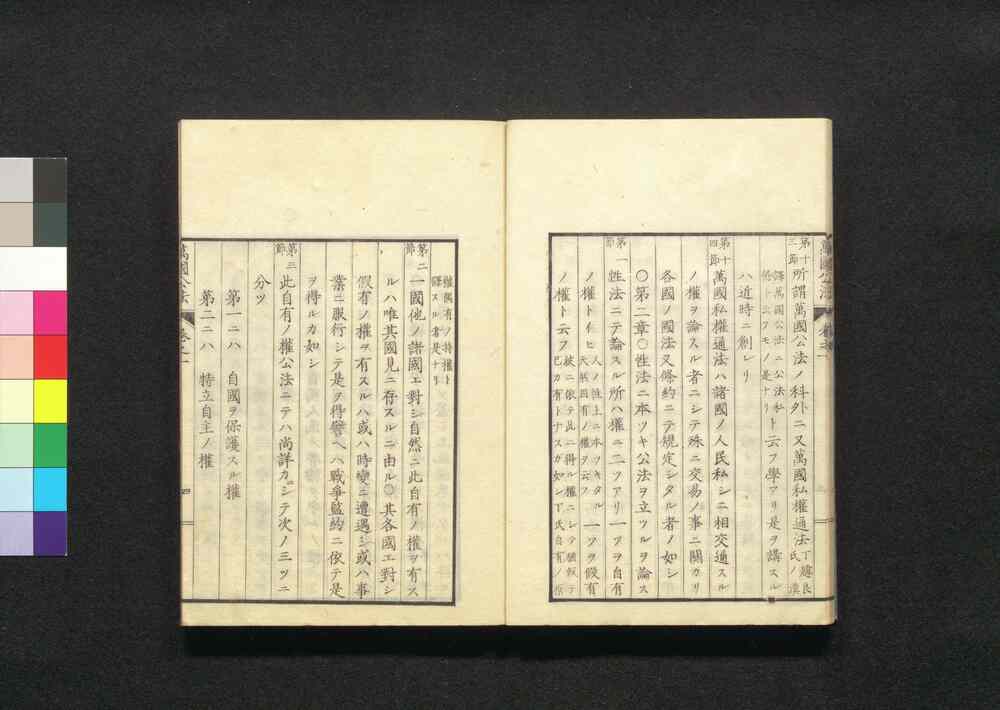 萬國公法　卷之一
第十三節　所謂萬國公法ノ科外ニ又萬國私權通法 丁韙良氏ノ漢
譯萬國公法ニ公法私條ト云フモノ是ナリ ト云フ學アリ是ヲ講スル
ハ近時ニ創レリ
第十四節　萬國私權通法ハ諸國ノ人民私シニ相交通スル
ノ權ヲ論スル者ニシテ殊ニ交易ノ事ニ關カリ
各國ノ國法又條約ニテ規定シタル者ノ如シ
〇第二章〇性法ニ本ツキ公法ヲ立ツルヲ論ス
第一節　性法ニテ論スル所ハ權ニ二ツアリ一ツヲ自有
ノ權ト仁ヒ 人ノ性上ニ本ツキタル天然固有ノ權ヲ云フ 一ツヲ假有
ノ權ト云フ 彼ニ依テ此ニ得ル權ニシテ猶假テ己カ有トナスガ如シ丁氏自有ノ原
權偶有ノ特權ト譯スル者是ナリ
第二節　一國他ノ諸國エ對シ自然ニ此自有ノ權ヲ有ス
ルハ唯其國見ニ存スルニ由ル〇其各國エ對シ
假有ノ權ヲ有スルハ或ハ時變ニ遭遇シ或ハ事
業ニ服行シテ是ヲ得譬ヘハ戰爭盟約ニ依テ是
ヲ得ルカ如シ
第三節　此自有ノ權公法ニテハ尚詳カニシテ次ノ三ツニ
分ツ
第一ニハ　自國ヲ保護スル權
第二ニハ　特立自主ノ權
萬國公法　卷之一　四